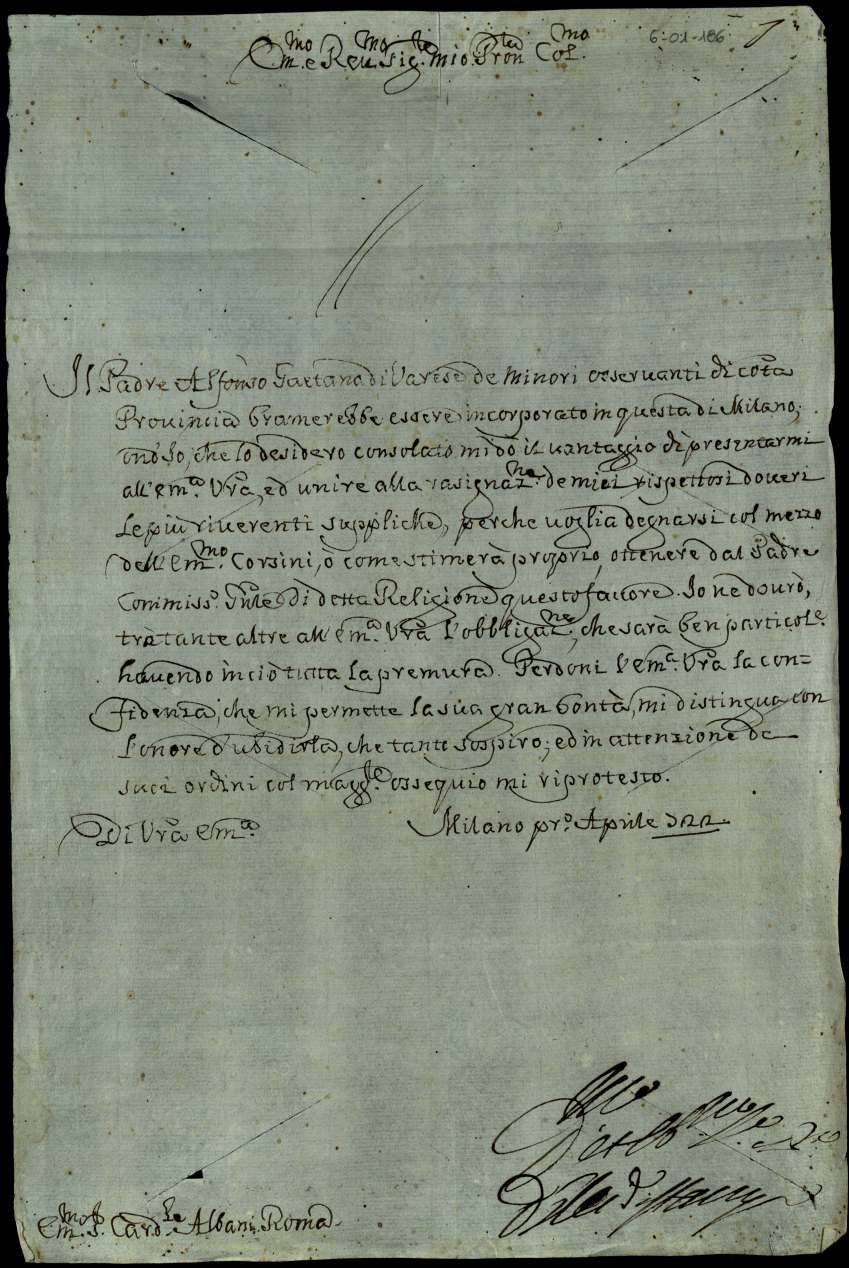 Em.mo e Reu.mo Sig.re mio Pron Col.mo
6-01-186
Il Padre Alfonso Gaetano di Varese de Minori osseruanti di cotta
Prouincia bramerebbe essere incorporato in questa di Milano;
ond'Io, che lo desidero consolato mi dò il uantaggio di presentarmi
all'Em.a Vra, ed unire alla rasignaz.ne de miei rispettosi doueri
le più riuerenti suppliche, perche uoglia degnarsi col mezzo
dell'Em.mo Corsini, ò come stimerà proprio, ottenere dal Padre
Commiss.o Gnle di detta Religione questo fauore. Io ne dourò,
trà tante altre all'Em.a Vra l'obbligaz.ne, che sarà ben particol.e
hauendo in ciò tutta la premura. Perdoni l'Em.a Vra la con=
fidenza, che mi permette la sua gran bontà, mi distingua con
l'onore d'ubidirla, che tanto sospiro; ed in attenzione de
suoi ordini col magg.re ossequio mi riprotesto.
Di Vra Em.a Milano pr.o Aprile 722
Em.mo S. Card.le Albani Roma